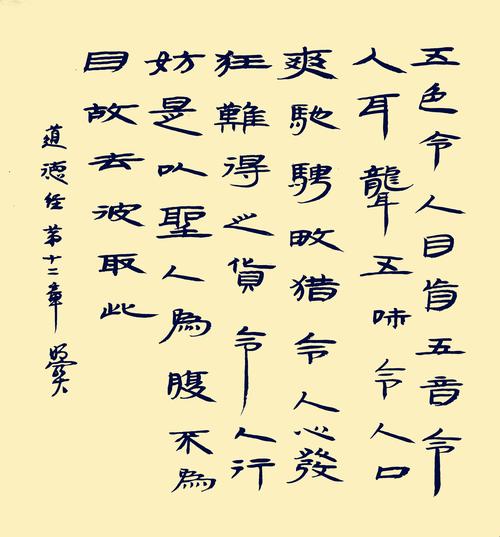 五色令人目盲五音令
人耳聾五味令人口
爽馳騁畋猎令人心發
狂難得之貨令人行
妨是以聖人為腹不為
目故去彼取此
道德经第十二章